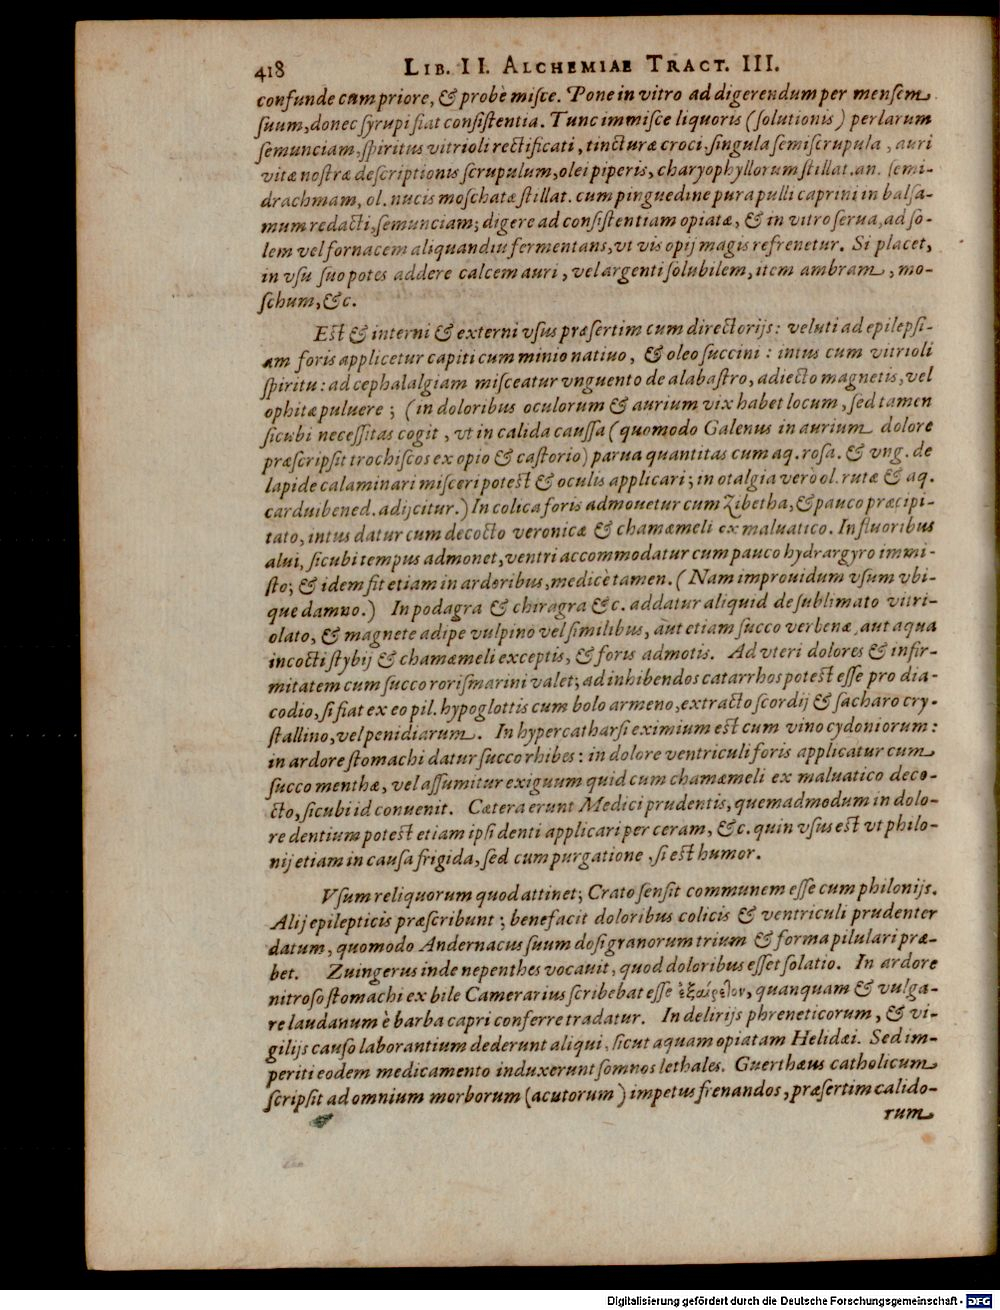 418 LIB. II. ALCHEMIAE TRACT. III.
confunde cum priore, & probè misce. Pone in vitro ad digerendum per mensem
suum, donec syrupi fiat consistentia. Tunc immisce liquoris (solutionis) perlarum
semunciam, spiritus vitrioli rectificati, tincturæ croci, singula semiscrupula, auri
vitæ nostræ descriptionis scrupulum, olei piperis, charyophyllorum stillat. an. semi-
drachmam, ol. nucis moschatæ stillat. cum pinguedine pura pulli caprini in balsa-
mum redacti, semunciam; digere ad consistentiam opiatæ, & in vitro serua, ad so-
lem vel fornacem aliquandiu fermentans, vt vis opij magis refrenetur. Si placet,
in vsu suo potes addere calcem auri, vel argenti solubilem, item ambram, mo-
schum, &c.
Est & interni & externi vsus præsertim cum directorijs: veluti ad epilepsi-
am foris applicetur capiti cum minio natiuo, & oleo succini: intus cum vitrioli
spiritu: ad cephalalgiam misceatur vnguento de alabastro, adiecto magnetis, vel
ophitæ puluere; (in doloribus oculorum & aurium vix habet locum, sed tamen
sicubi necessitas cogit, vt in calida caussa (quomodo Galenus in aurium dolore
præscripsit trochiscos ex opio & castorio) parua quantitas cum aq. rosa. & vng. de
lapide calaminari misceri potest & oculis applicari; in otalgia verò ol. rutæ & aq.
cardui bened. adijcitur.) In colica foris admouetur cum Zibetha, & pauco præcipi-
tato, intus datur cum decocto veronicæ & chamæmeli ex maluatico. In fluoribus
alui, sicubi tempus admonet, ventri accommodatur cum pauco hydrargyro immi-
sto; & idem fit etiam in ardoribus, medicè tamen. (Nam improuidum vsum vbi-
que damno.) In podagra & chiragra &c. addatur aliquid de sublimato vitri-
olato, & magnete adipe vulpino vel similibus, aut etiam succo verbenæ, aut aqua
incocti stybij & chamæmeli exceptis, & foris admotis. Ad vteri dolores & infir-
mitatem cum succo rorismarini valet; ad inhibendos catarrhos potest esse pro dia-
codio, si fiat ex eo pil. hypoglottis cum bolo armeno, extracto scordij & sacharo cry-
stallino, vel penidiarum. In hypercatharsi eximium est cum vino cydoniorum:
in ardore stomachi datur succo rhibes: in dolore ventriculi foris applicatur cum
succo menthæ, vel assumitur exiguum quid cum chamæmeli ex maluatico deco-
cto, sicubi id conuenit. Cætera erunt Medici prudentis, quemadmodum in dolo-
re dentium potest etiam ipsi denti applicari per ceram, &c. quin vsus est vt philo-
nij etiam in causa frigida, sed cum purgatione, si est humor.
Vsum reliquorum quod attinet; Crato sensit communem esse cum philonijs.
Alij epilepticis præscribunt; benefacit doloribus colicis & ventriculi prudenter
datum, quomodo Andernacus suum dosi granorum trium & forma pilulari præ-
bet. Zuingerus inde nepenthes vocauit, quod doloribus esset solatio. In ardore
nitroso stomachi ex bile Camerarius scribebat esse ἐξαίρετον, quanquam & vulga-
re laudanum è barba capri conferre tradatur. In delirijs phreneticorum, & vi-
gilijs causo laborantium dederunt aliqui, sicut aquam opiatam Helidæi. Sed im-
periti eodem medicamento induxerunt somnos lethales. Guerthæus catholicum
scripsit ad omnium morborum (acutorum) impetus frenandos, præsertim calido-
rum
Digitalisierung gefördert durch die Deutsche Forschungsgemeinschaft - DFG